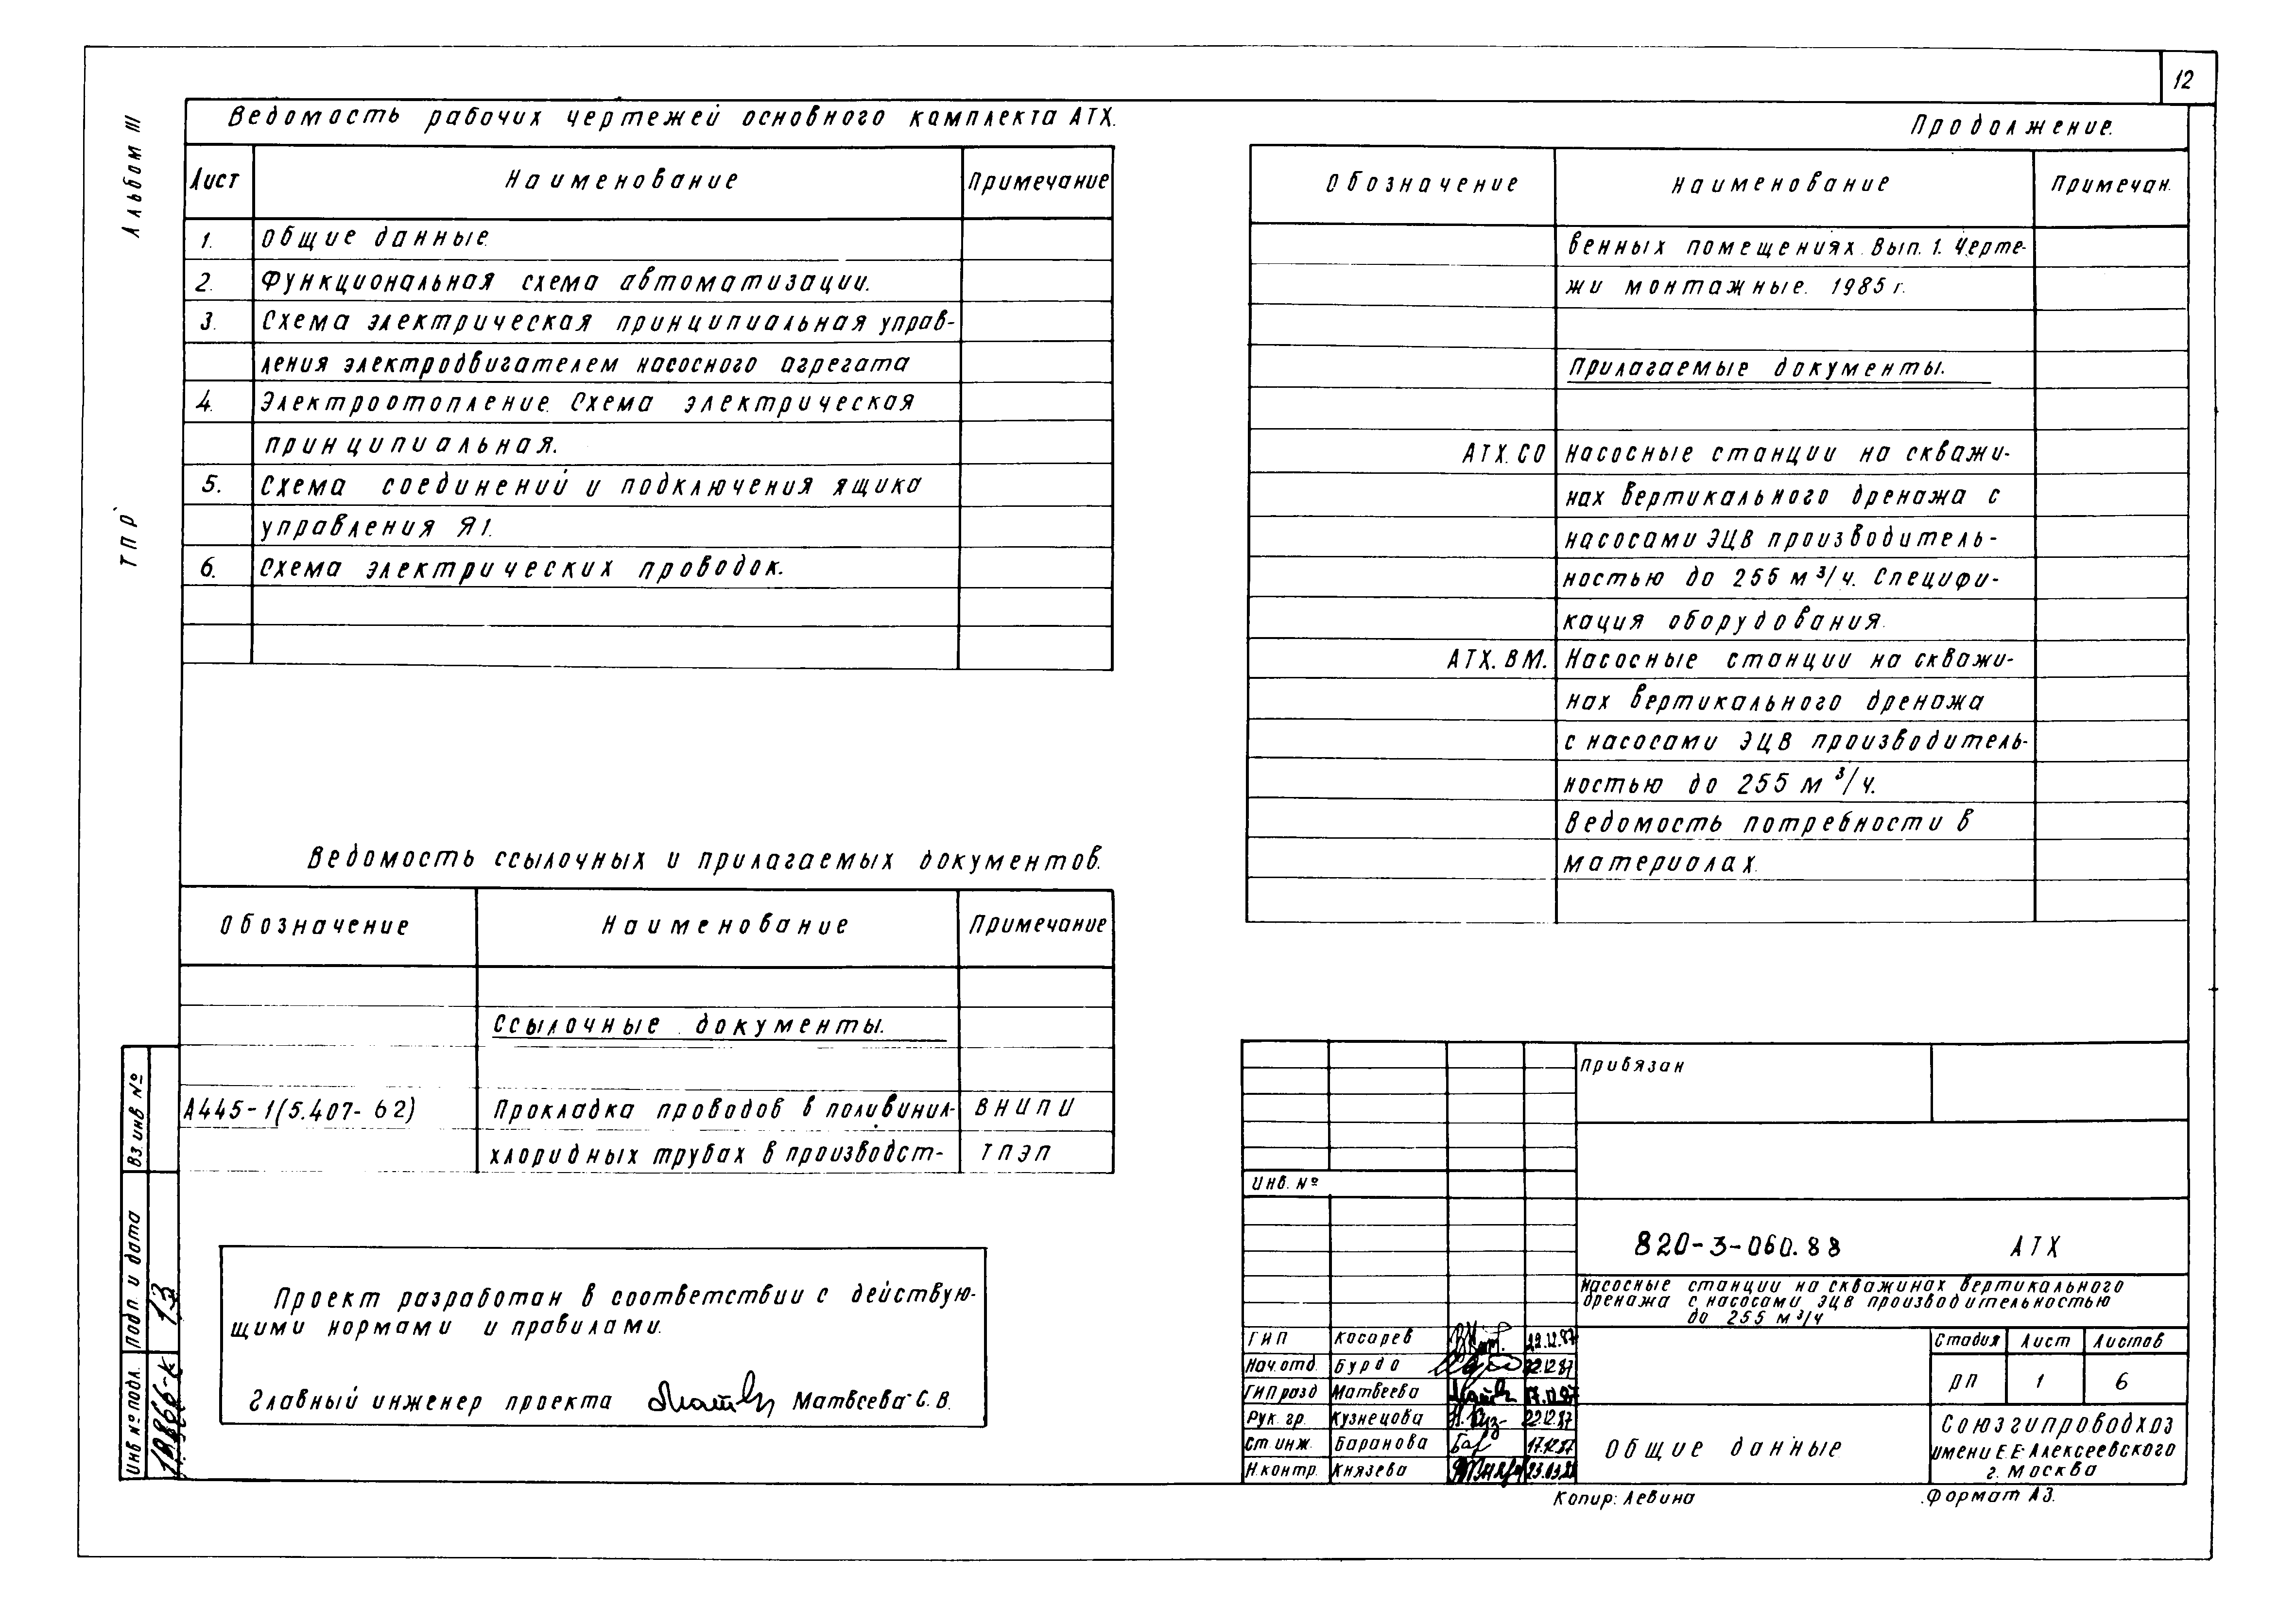 12
Альбом III
ТПР
Ведомость рабочих чертежей основного комплекта АТХ.
Лист Наименование Примечание
1. Общие данные.
2. Функциональная схема автоматизации.
3. Схема электрическая принципиальная управ-
ления электродвигателем насосного агрегата
4. Электроотопление. Схема электрическая
принципиальная.
5. Схема соединений и подключения ящика
управления Я1.
6. Схема электрических проводок.
Ведомость ссылочных и прилагаемых документов.
Обозначение Наименование Примечание
Ссылочные документы.
А445-1(5.407-62) Прокладка проводов в поливинил- ВНИПИ
хлоридных трубах в производст- ТПЭП
Проект разработан в соответствии с действую-
щими нормами и правилами.
Главный инженер проекта Матвеева С.В.
Продолжение.
Обозначение Наименование Примечан.
венных помещениях. Вып. 1. Черте-
жи монтажные. 1985 г.
Прилагаемые документы.
АТХ.СО Насосные станции на скважи-
нах вертикального дренажа с
насосами ЭЦВ производитель-
ностью до 255 м³/ч. Специфи-
кация оборудования.
АТХ.ВМ. Насосные станции на скважи-
нах вертикального дренажа
с насосами ЭЦВ производитель-
ностью до 255 м³/ч.
Ведомость потребности в
материалах.
Привязан
Инв. №
820-3-060.88 АТХ
Насосные станции на скважинах вертикального
дренажа с насосами ЭЦВ производительностью
до 255 м³/ч
ГИП Косарев 22.12.87
Нач.отд. Бурда 22.12.87
ГИП разд Матвеева 17.12.87
Рук. гр. Кузнецова 22.12.87
Ст. инж. Баранова 17.12.87
Н.контр. Князева
Стадия Лист Листов
РП 1 6
Общие данные
Союзгипроводхоз
имени Е.Е. Алексеевского
г. Москва
Копир: Левина
Формат А3.
Вз. инв №
Подп. и дата
Инв № подл.
13